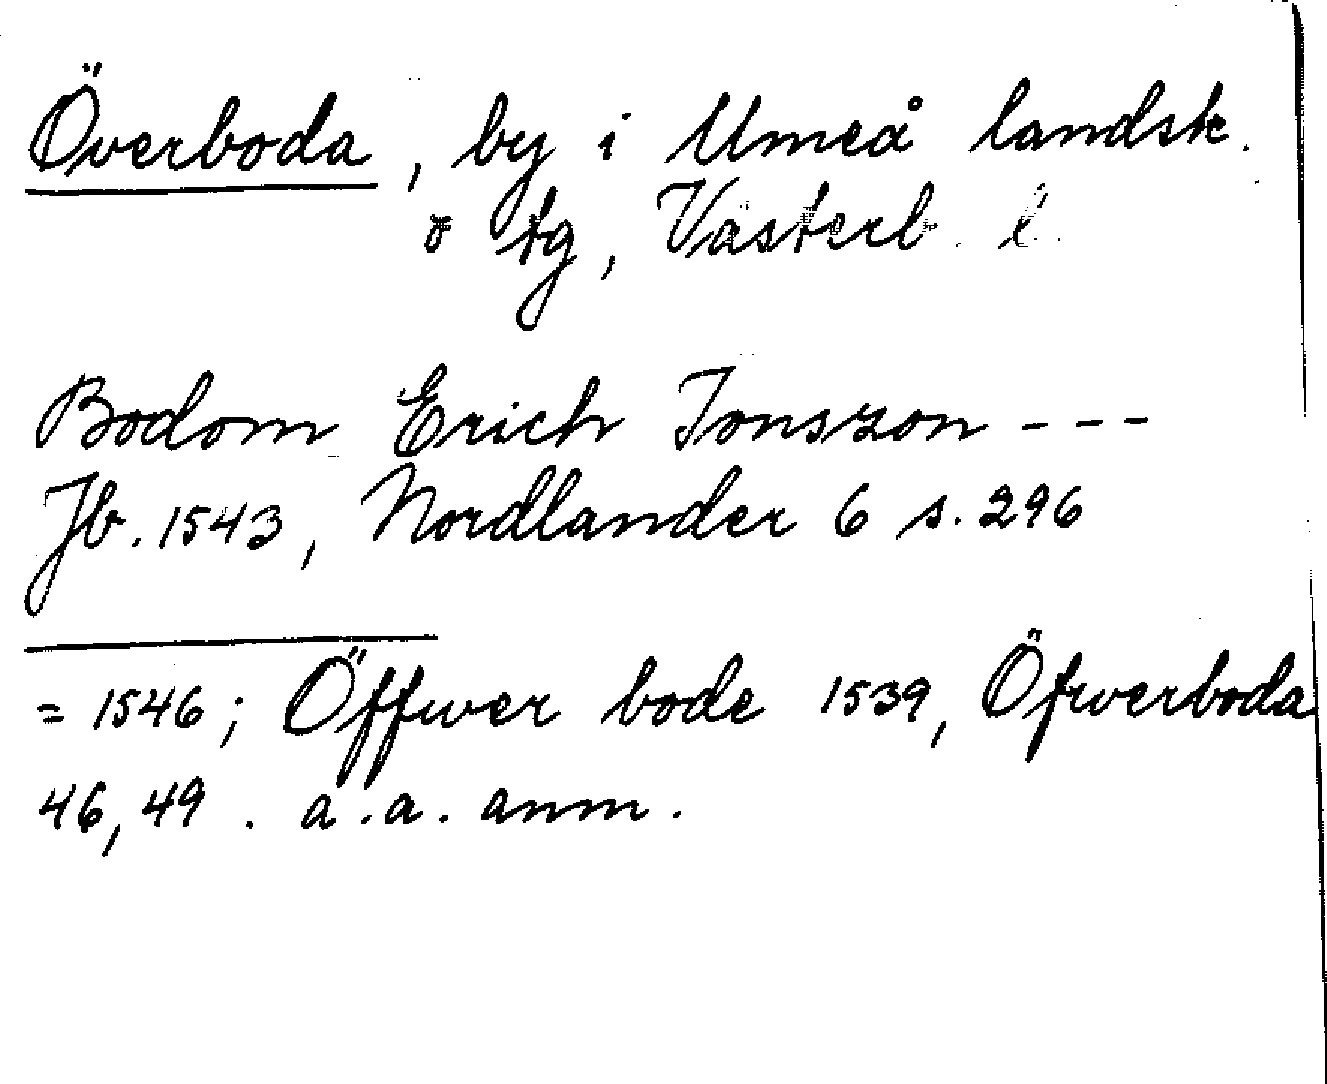 Överboda, by i Umeå landsk.
o tg, Västerb. l.
Bodom Erich Jonszon ---
Jb. 1543, Nordlander 6 s. 296
= 1546; Öffwer bode 1539, Öfwerboda
46, 49. a.a. anm.